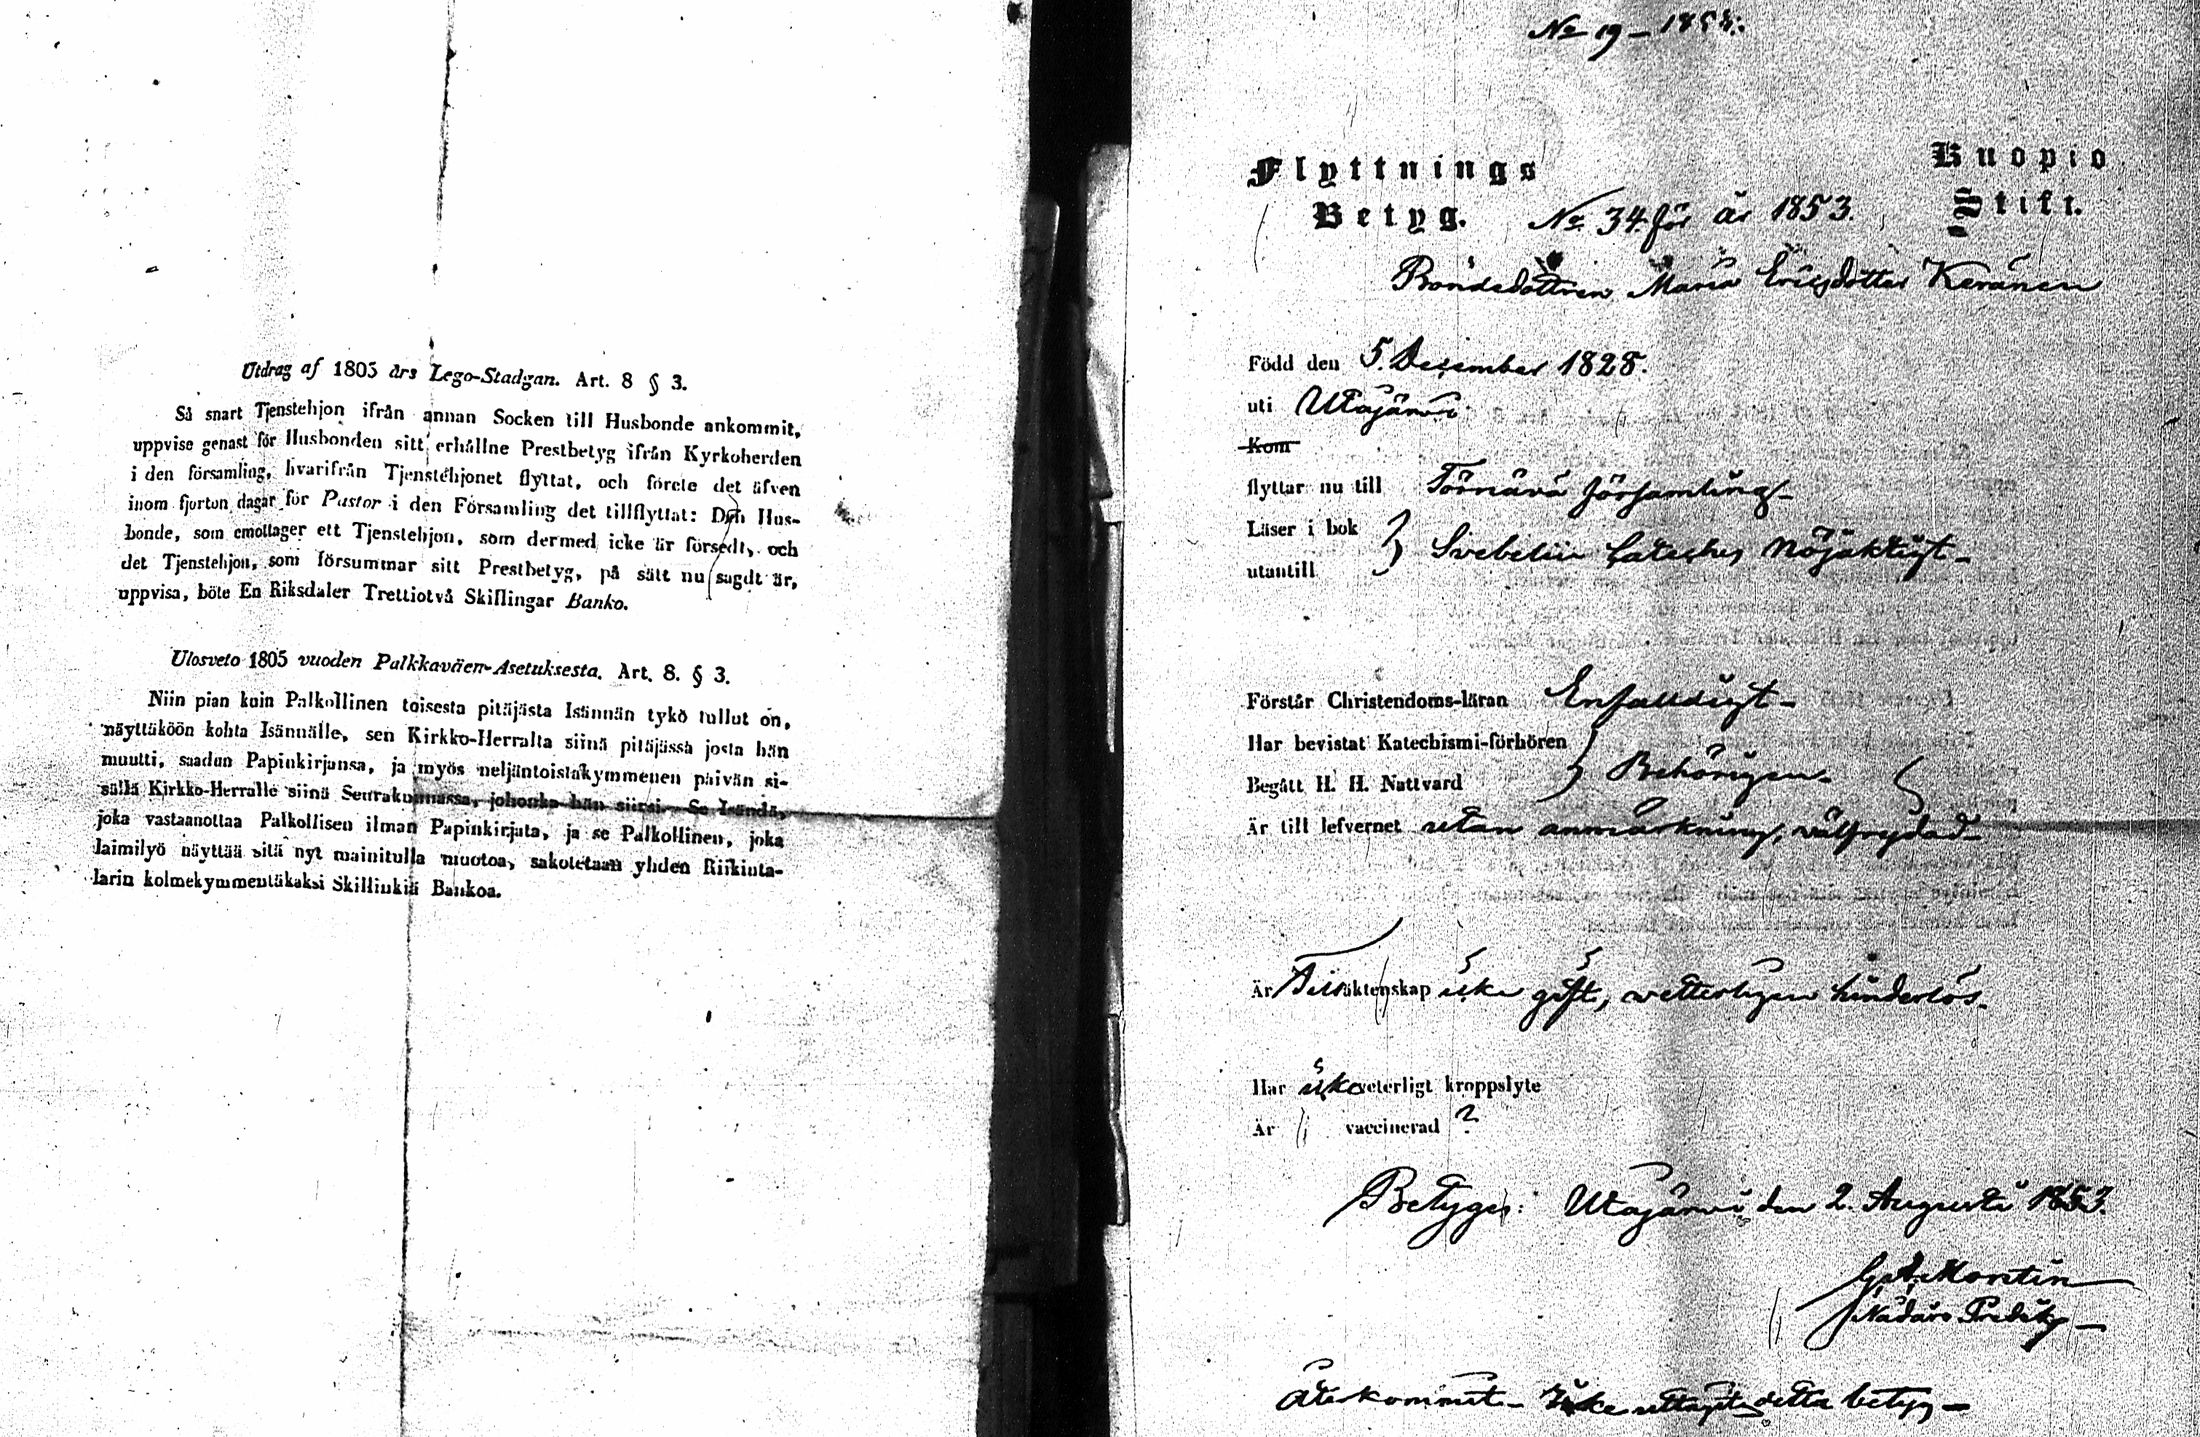 Utdrag af 1805 års Lego-Stadgan. Art. 8 § 3.
Så snart Tjenstehjon ifrån annan Socken till Husbonde ankommit,
uppvise genast för Husbonden sitt erhållne Prestbetyg ifrån Kyrkoherden
i den församling, hvarifrån Tjenstehjonet flyttat, och förete det äfven
inom fjorton dagar för Pastor i den Församling det tillflyttat: Den Hus-
bonde, som emottager ett Tjenstehjon, som dermed icke är försedt, och
det Tjenstehjon, som försummar sitt Prestbetyg, på sätt nu sagdt är,
uppvisa, böte En Riksdaler Trettiotvå Skillingar Banko.
Ulosveto 1805 vuoden Palkkaväen-Asetuksesta. Art. 8. § 3.
Niin pian kuin Palkollinen toisesta pitäjästä Isännän tykö tullut on,
näyttäköön kohta Isännälle, sen Kirkko-Herralta siinä pitäjässä josta hän
muutti, saadun Papinkirjansa, ja myös neljäntoistakymmenen päivän si-
sällä Kirkko-Herralle siinä Seurakunnassa, johonka hän siirsi. Se Isäntä,
joka vastaanottaa Palkollisen ilman Papinkirjata, ja se Palkollinen, joka
laimilyö näyttää sitä nyt mainitulla muotoa, sakotetaan yhden Riikinta-
larin kolmekymmentäkaksi Skillinkiä Bankoa.
No 19 – 1854.
Flyttnings Kuopio
Betyg. No 34 för år 1853. Stift.
Bondedottren Maria Ericsdotter Keränen
Född den 5. December 1828.
uti Utajärvi
Kom
flyttar nu till Törnävä församling
Läser i bok
utantill Svebelii Cateches nöjaktigt
Förstår Christendoms-läran Enfaldigt
Har bevistat Katechismi-förhören
Begått H. H. Nattvard Behörigen
Är till lefvernet utan anmärkning, välfrejdad
Är Till äktenskap icke gift, vetterligen hinderlös
Har icke veterligt kroppslyte
Är vaccinerad ?
Betygar: Utajärvi den 2. Augusti 1853.
G. A. Montin
Nådårs Predik.
Återkommit – Icke uttagit detta betyg –